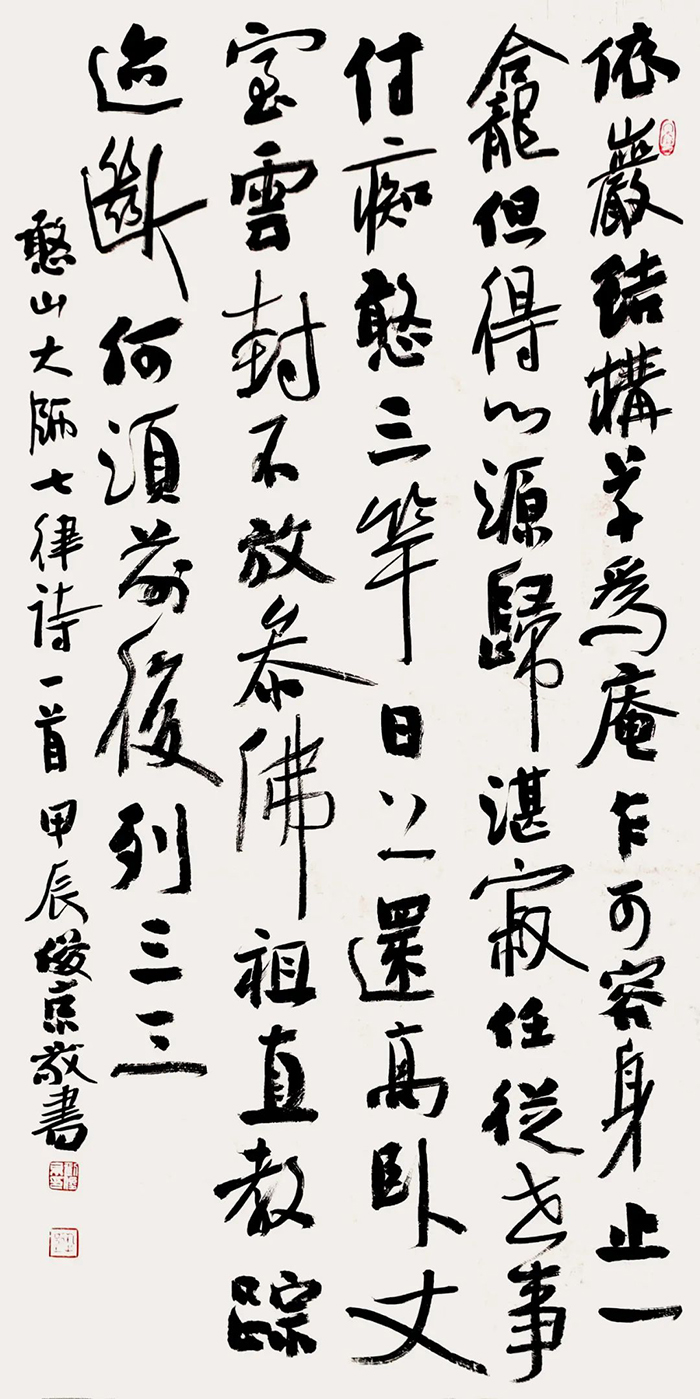 依巖結構草爲庵乍可容身止一
龕但得心源歸湛寂任從世事
付痴憨三竿日上還高臥丈
室雲封不放參佛祖直教踪
迹斷何須前後列三三
憨山大師七律詩一首甲辰俊京敬書